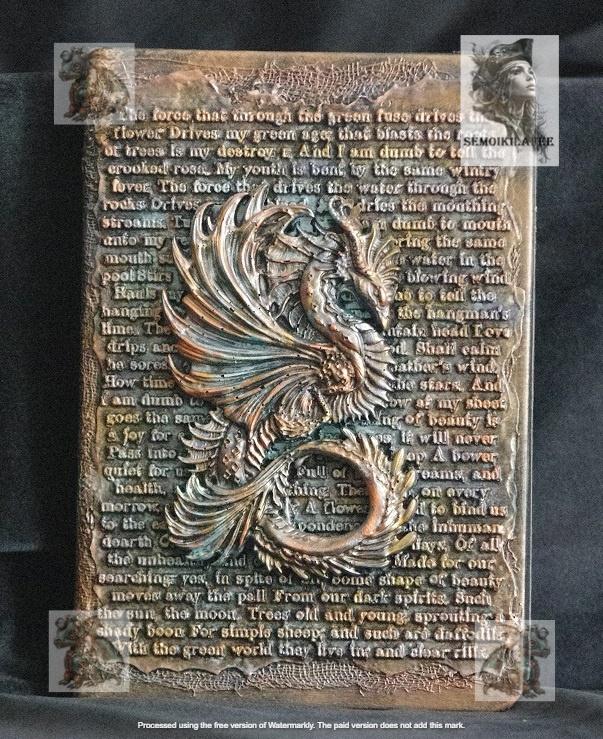 The force that through the green fuse drives the
flower Drives my green age; that blasts the roots
of trees Is my destroyer. And I am dumb to tell the
crooked rose, My youth is bent by the same wintry
fever. The force that drives the water through the
rocks Drives dries the mouthing
streams dumb to mouth
unto my the same
mouth water in the
pool Stirs blowing wind
Hauls my to tell the
hanging the hangman's
time. The head Love
drips and Shall calm
the sores weather's wind,
How time the stars. And
I am dumb my sheet
goes the same of beauty is
a joy for it will never
Pass into A bower
quiet for Full of and
health, on every
morrow, A flowery to bind us
to the Inhuman
dearth Of days, Of all
the unhealthy and Made for our
searching: yes, in spite of some shape of beauty
moves away the pall From our dark spirits. Such
the sun, the moon, Trees old and young, sprouting a
shady boon For simple sheep; and such are daffodils
With the green world they live in; and clear rills
SEMOIKILAJEE
Processed using the free version of Watermarkly. The paid version does not add this mark.